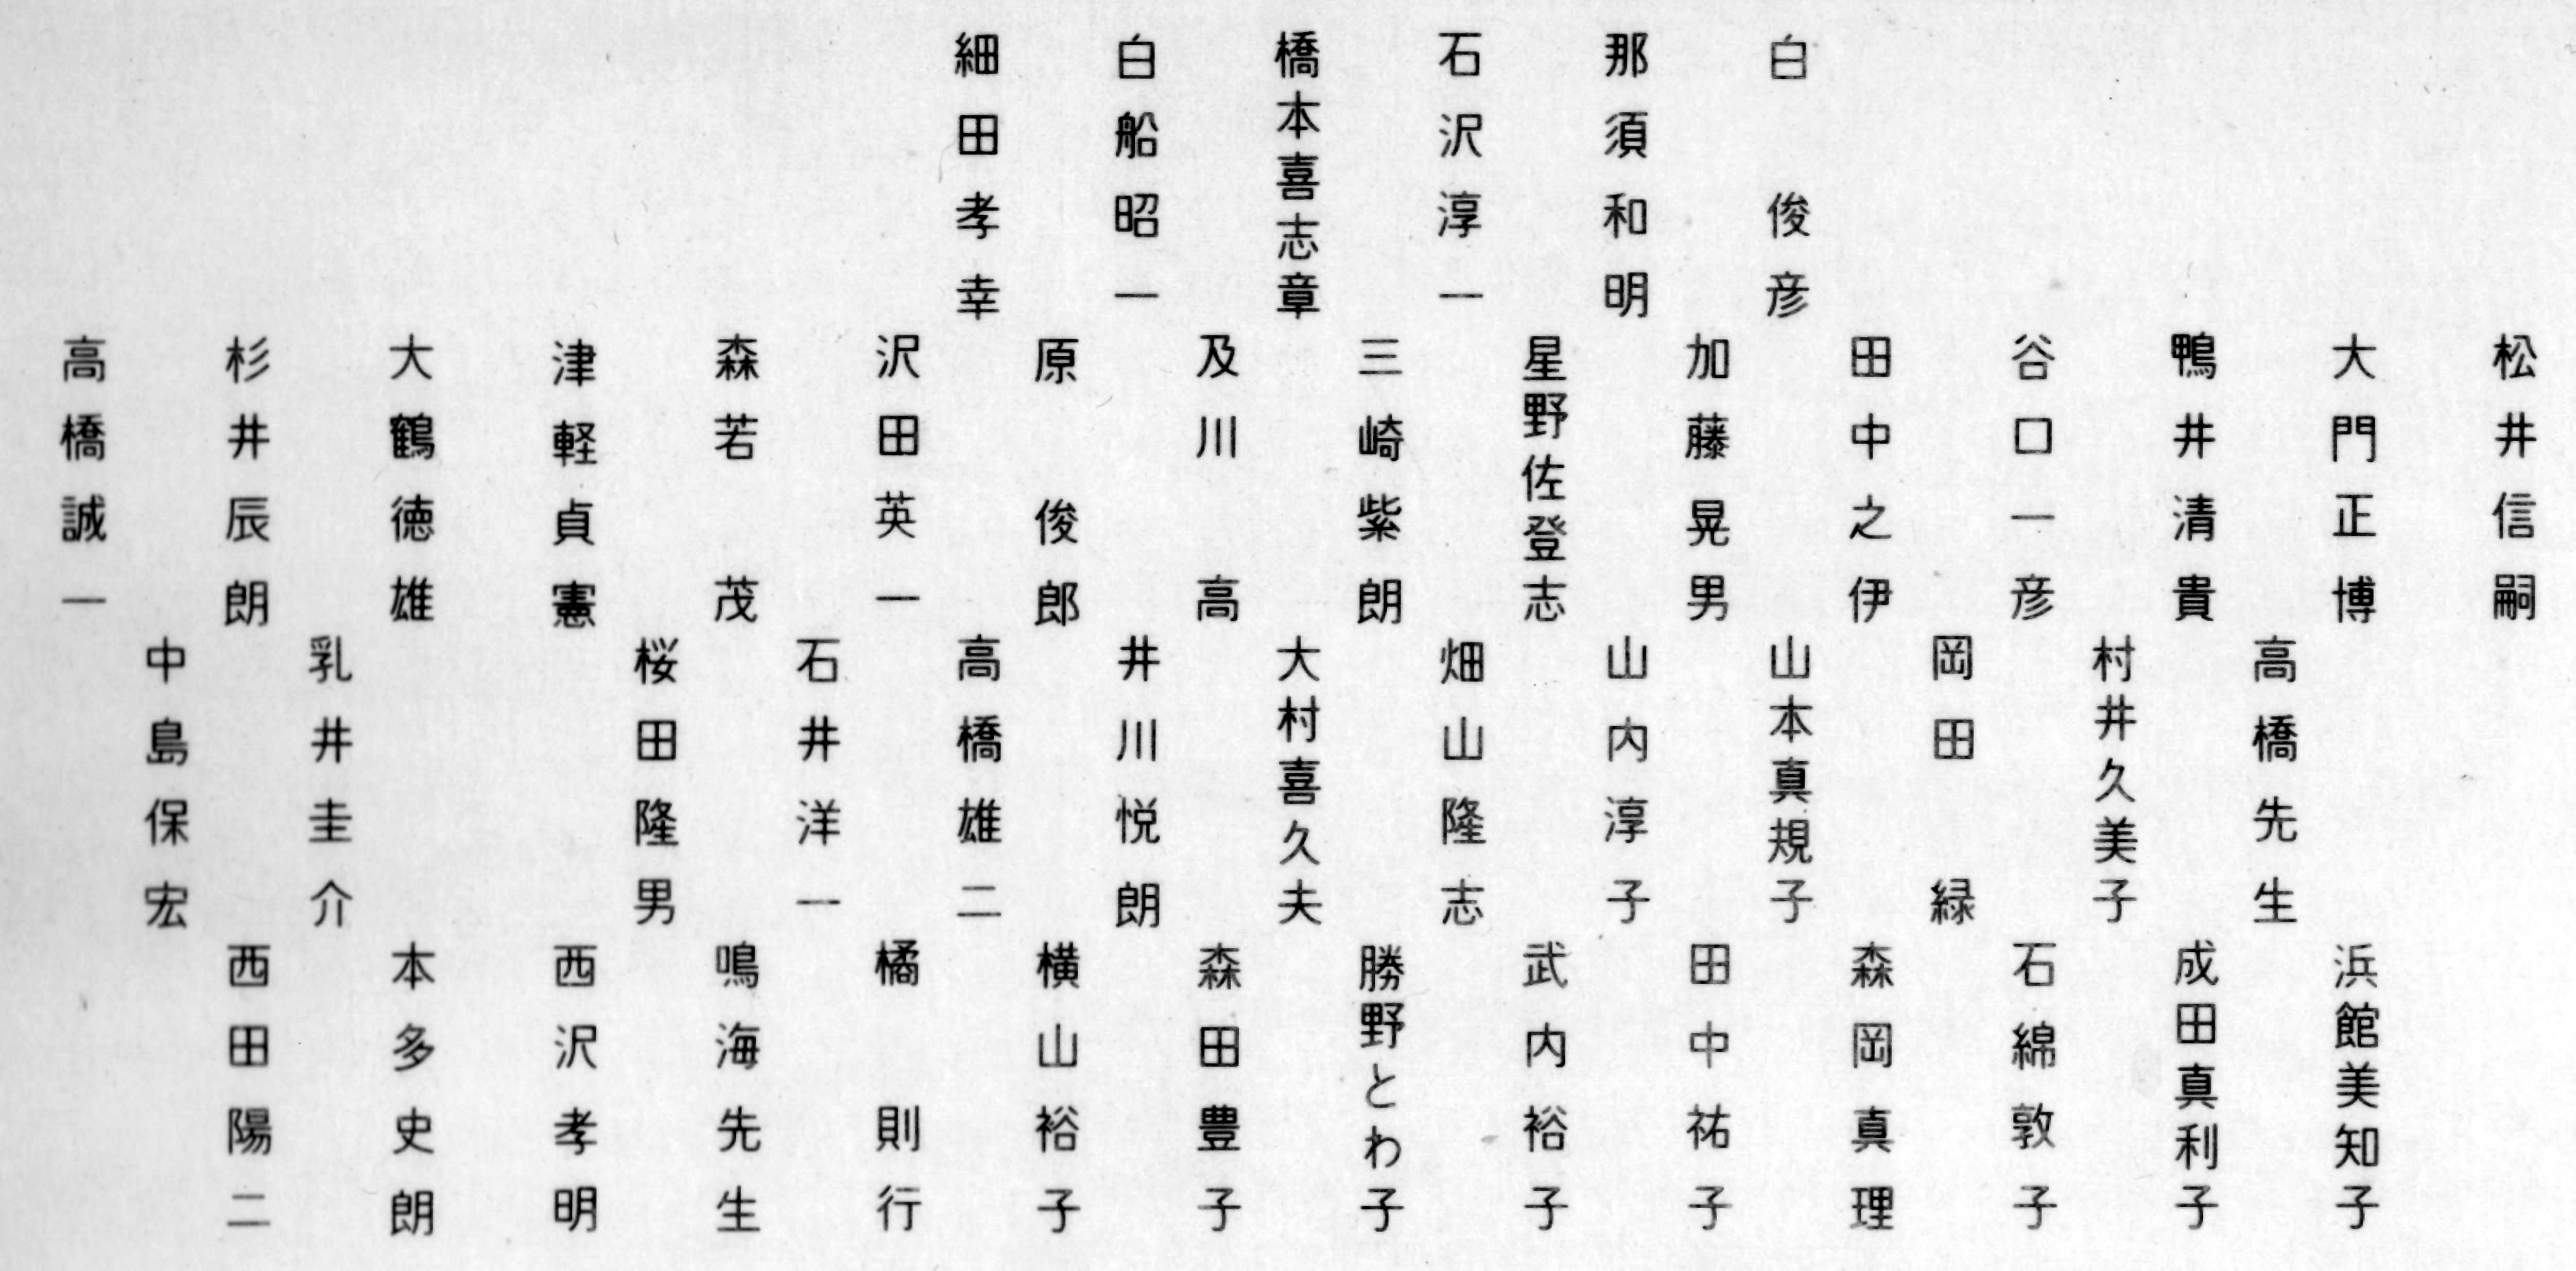 白 俊彦
那須和明
石沢淳一
橋本喜志章
白船昭一
細田孝幸
松井信嗣
大門正博
鴨井清貴
谷口一彦
田中之伊
加藤晃男
星野佐登志
三崎紫朗
及川 高
原 俊郎
沢田英一
森若 茂
津軽貞憲
大鶴徳雄
杉井辰朗
高橋誠一
高橋先生
村井久美子
岡田 緑
山本真規子
山内淳子
畑山隆志
大村喜久夫
井川悦朗
高橋雄二
石井洋一
桜田隆男
乳井圭介
中島保宏
浜館美知子
成田真利子
石綿敦子
森岡真理
田中祐子
武内裕子
勝野とわ子
森田豊子
横山裕子
橘 則行
鳴海先生
西沢孝明
本多史朗
西田陽二